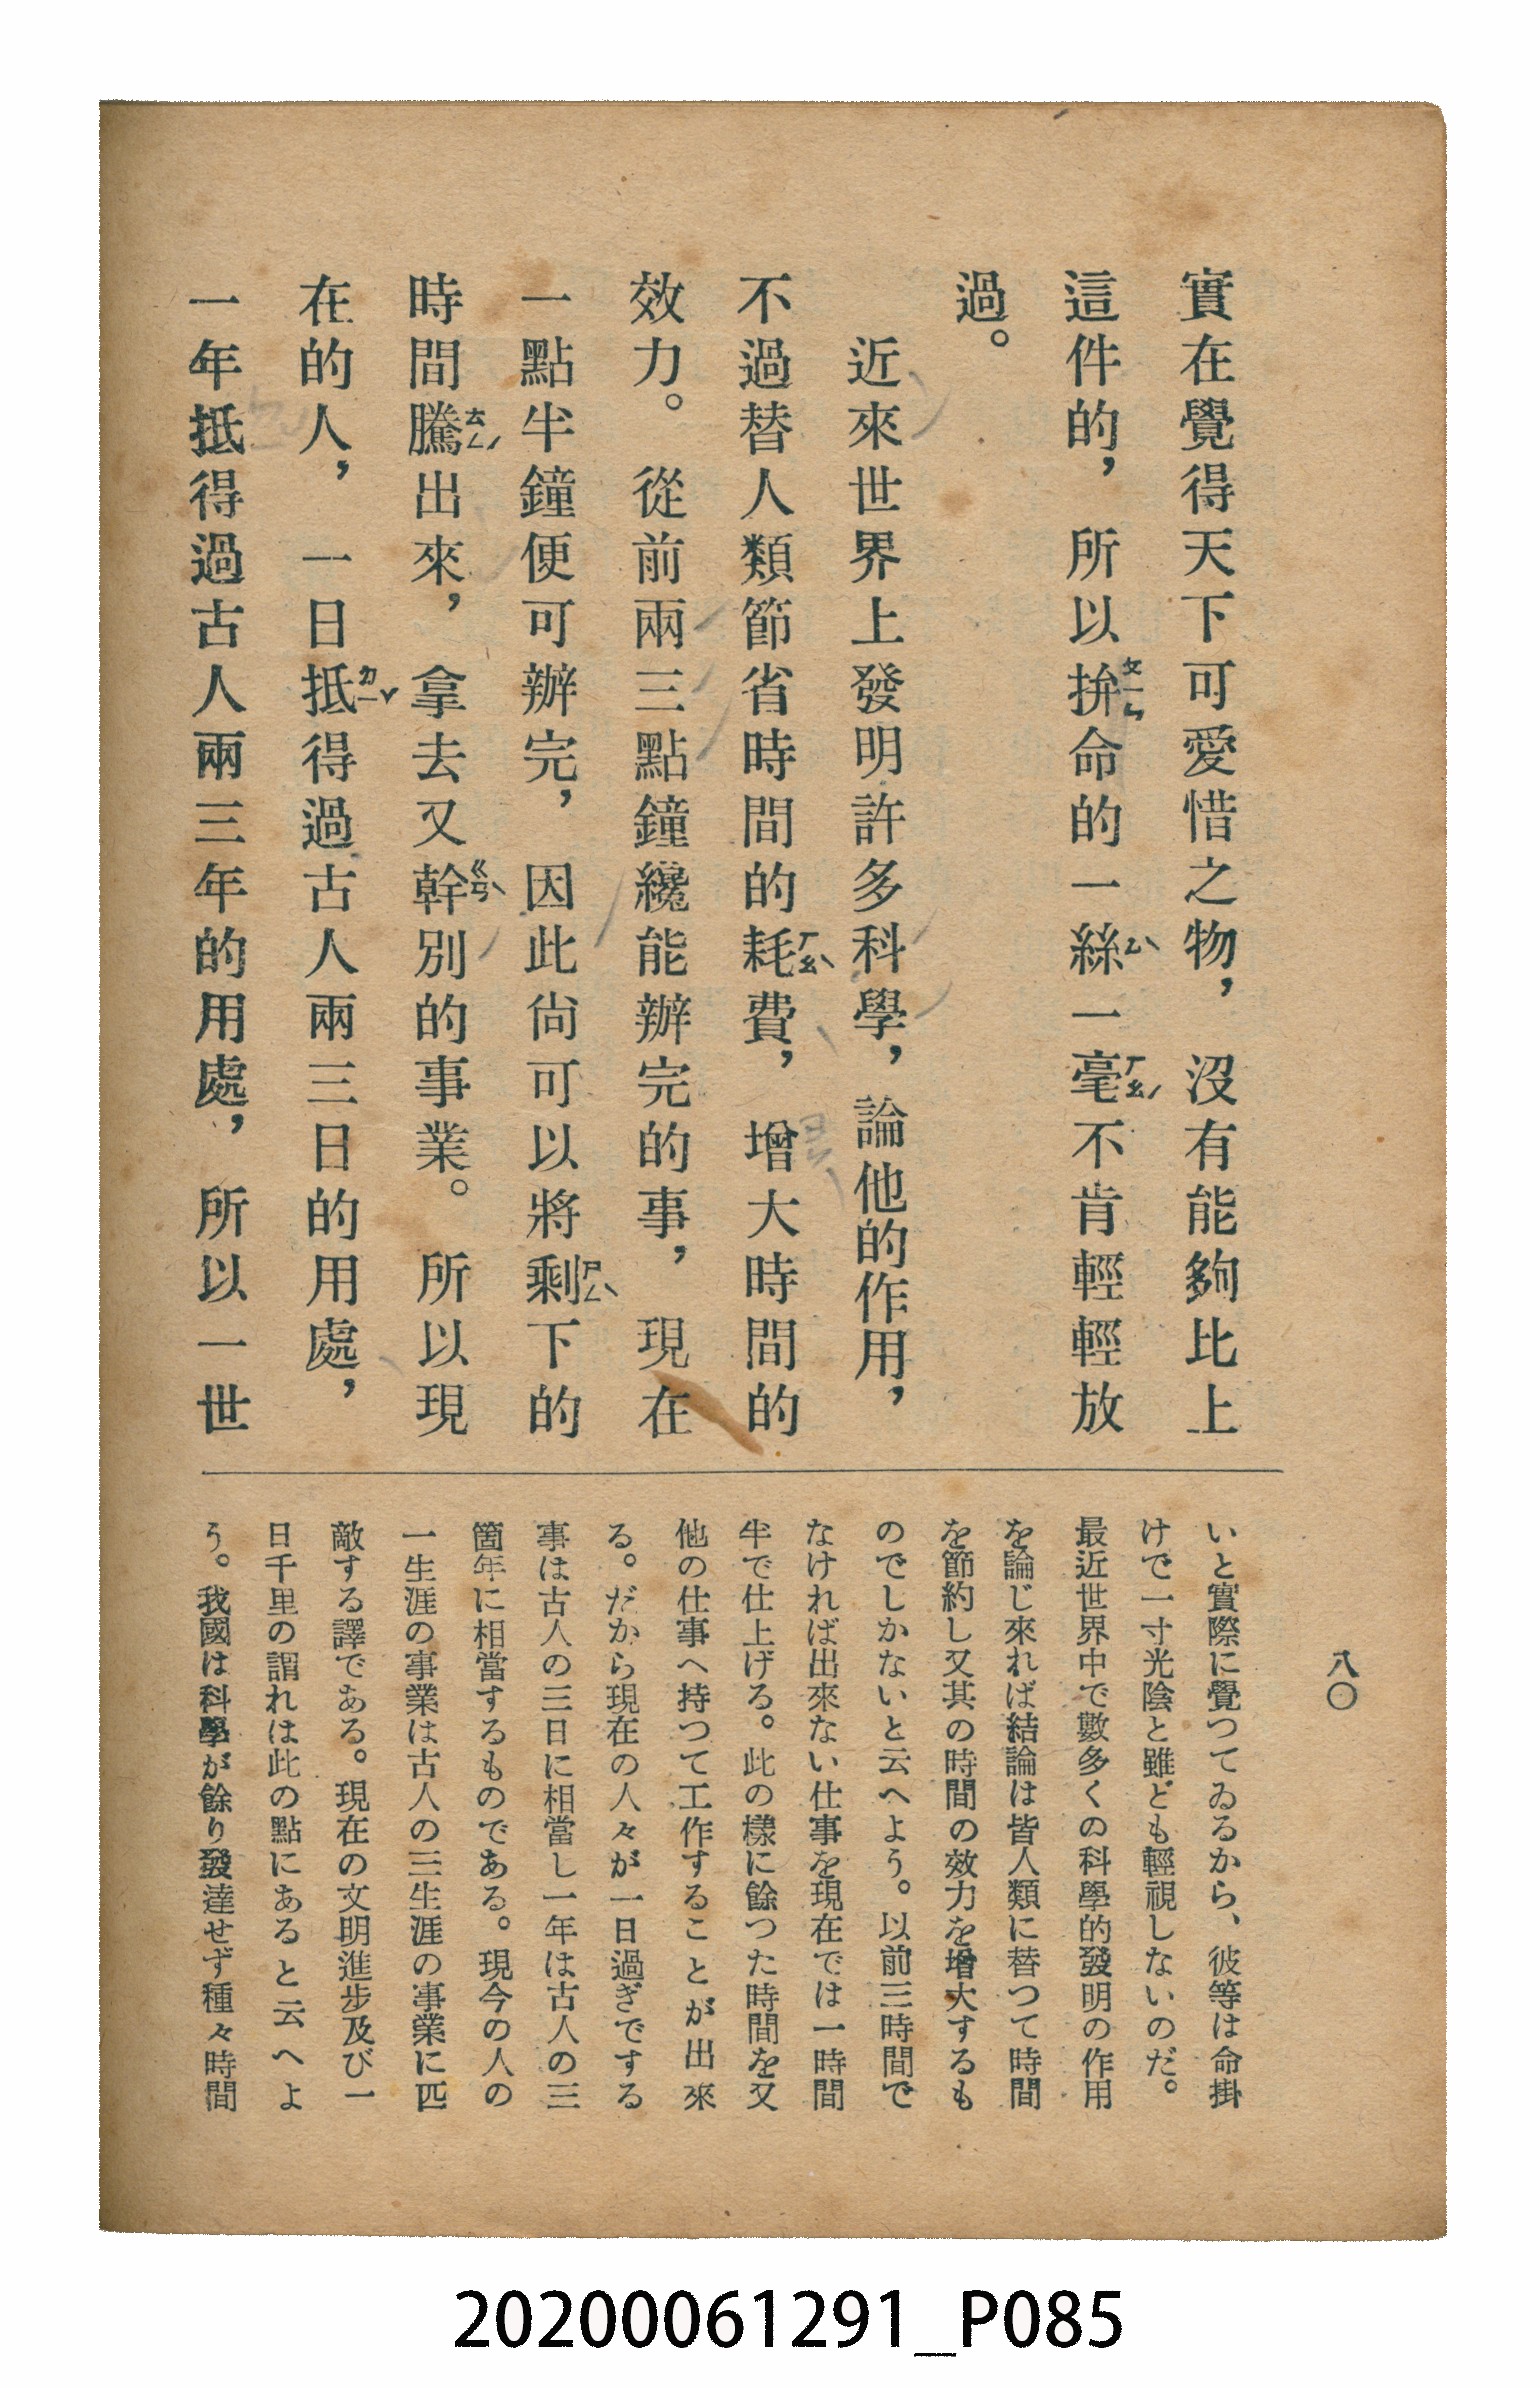 實在覺得天下可愛惜之物，沒有能夠比上
這件的，所以拚ㄆㄧㄣ命的一絲ㄙ一毫ㄏㄠˊ不肯輕輕放
過。
近來世界上發明許多科學，論他的作用，
不過替人類節省時間的耗ㄏㄠˋ費，增大時間的
效力。從前兩三點鐘纔能辦完的事，現在
一點半鐘便可辦完，因此尙可以將剩ㄕㄥˋ下的
時間騰ㄊㄥˊ出來，拿去又幹ㄍㄢˋ別的事業。所以現
在的人，一日抵ㄉㄧˇ得過古人兩三日的用處，
一年抵得過古人兩三年的用處，所以一世
八〇
いと實際に覺つてゐるから、彼等は命掛
けで一寸光陰と雖ども輕視しないのだ。
最近世界中で數多くの科學的發明の作用
を論じ來れば結論は皆人類に替つて時間
を節約し又其の時間の效力を增大するも
のでしかないと云へよう。以前三時間で
なければ出來ない仕事を現在では一時間
半で仕上げる。此の樣に餘つた時間を又
他の仕事へ持つて工作することが出來
る。だから現在の人々が一日過ぎでする
事は古人の三日に相當し一年は古人の三
箇年に相當するものである。現今の人の
一生涯の事業は古人の三生涯の事業に匹
敵する譯である。現在の文明進步及び一
日千里の謂れは此の點にあると云へよ
う。我國は科學が餘り發達せず種々時間
20200061291_P085